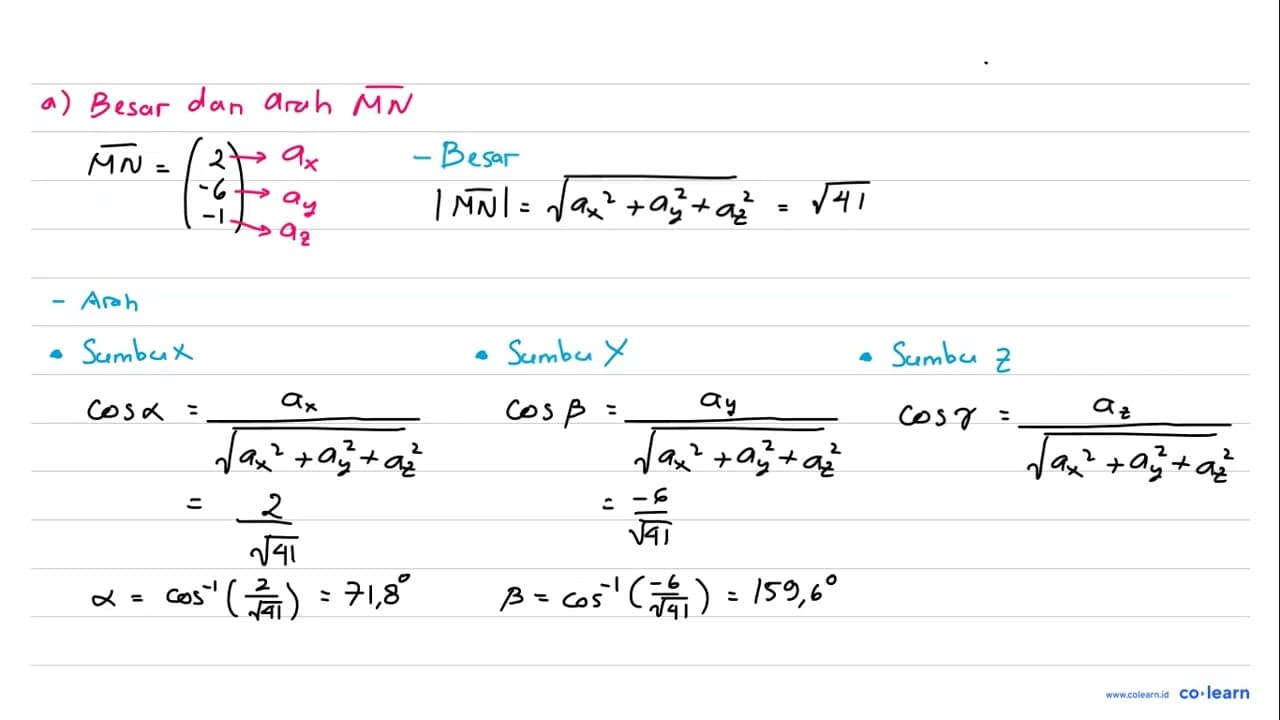 a) Besar dan arah M̅N̅
M̅N̅ = (2 → aₓ
-6 → a_y
-1) → a_z
- Besar
|M̅N̅| = √(aₓ² + a_y² + a_z²) = √41
- Arah
• Sumbu x
cos α = aₓ / √(aₓ² + a_y² + a_z²)
= 2/√41
α = cos⁻¹ (2/√41) = 71,8°
• Sumbu Y
cos β = a_y / √(aₓ² + a_y² + a_z²)
= -6/√41
β = cos⁻¹ (-6/√41) = 159,6°
• Sumbu z
cos γ = a_z / √(aₓ² + a_y² + a_z²)
www.colearn.id co·learn